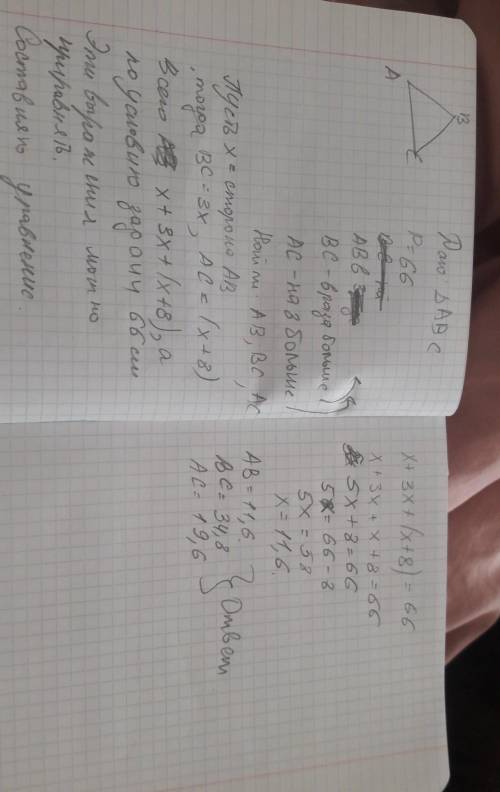 B
A
C
Дано △ABC
P=66
AB в
BC - в раза больше
AC - на 8 больше
Найти: AB, BC, AC
Пусть x = сторона AB
, тогда BC = 3x, AC = (x+8)
Всего x + 3x + (x+8), а
по условию задачи 66 см
Эти выражения можно
приравнять.
Составляю уравнение.
x + 3x + (x+8) = 66
x + 3x + x + 8 = 66
5x + 8 = 66
5x = 66 - 8
5x = 58
x = 11,6.
AB = 11,6.
BC = 34,8
AC = 19,6
} Ответ